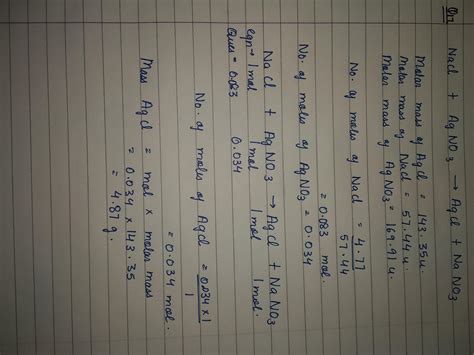 Q12 NaCl + AgNO3 → AgCl + NaNO3
Molar mass of AgCl = 143.35u
Molar mass of NaCl = 57.44u
Molar mass of AgNO3 = 169.91u
No. of moles of NaCl = 4.77
57.44
= 0.083 mol.
No. of moles of AgNO3 = 0.034
NaCl + AgNO3 → AgCl + NaNO3
eqn → 1mol 1mol 1mol 1mol.
Ques = 0.083 0.034
No. of moles of AgCl = 0.034 × 1
1
= 0.034 mol.
Mass AgCl = mol × molar mass
= 0.034 × 143.35
= 4.87 g.